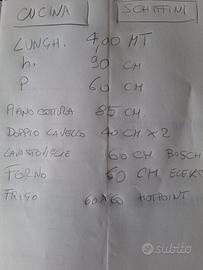 CUCINA SCHIFFINI
LUNGH. 4,00 MT
h. 90 CM
P 60 CM
PIANO COTTURA 85 CM
DOPPIO LAVELLO 40 CM X 2
LAVASTOVIGLIE 60 CM BOSCH
FORNO 60 CM
FRIGO 60X60 HOTPOINT
subito